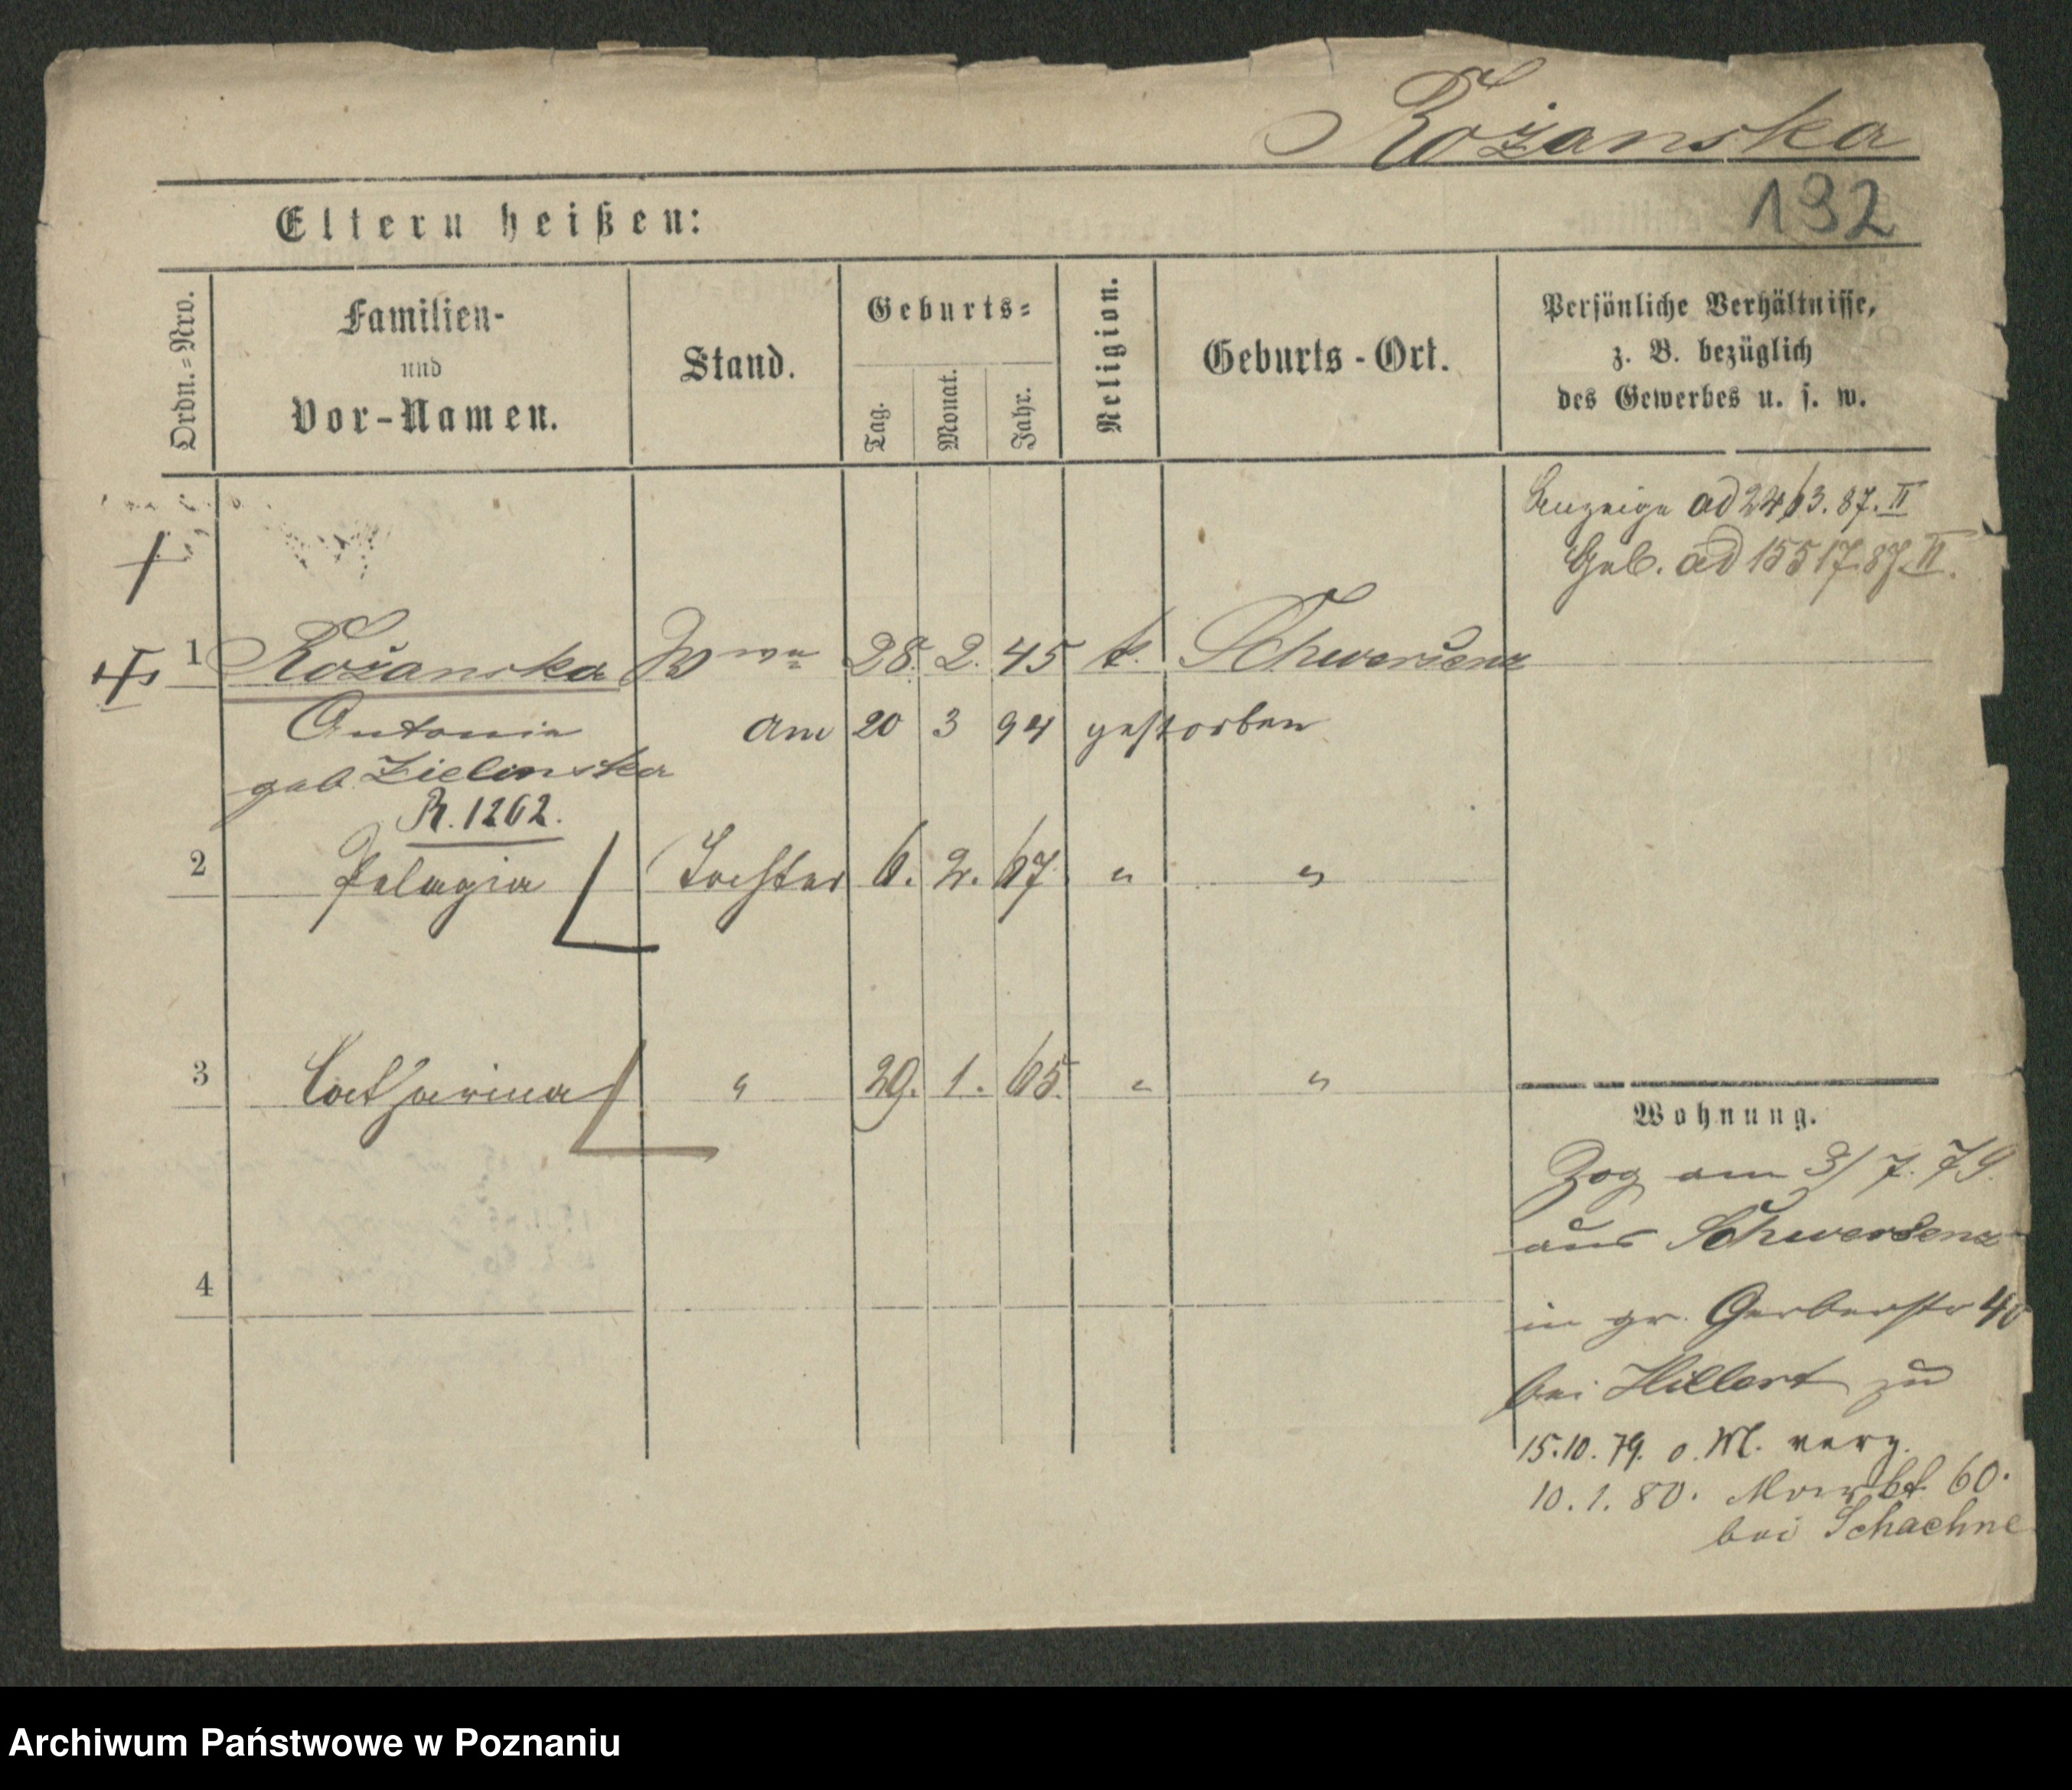 Rożanska
192
Eltern heißen:
Ordn.=Nro.
Familien-
und
Vor-Namen.
Stand.
Geburts=
Tag.
Monat.
Jahr.
Religion.
Geburts-Ort.
Persönliche Verhältnisse,
z. B. bezüglich
des Gewerbes u. s. w.
Anzeige ad 2463.87.II
Geb. ad 15517.87.II.
1 Rożanska Wwe 28. 2. 45 k. Schwersenz
Antonie am 20 3 94 gestorben
geb. Zielinska
R. 1262.
2 Pelagia Tochter 6. 2. 67. " "
3 Catharina " 29. 1. 65. " "
4
Wohnung.
Zog am 3/7. 79.
aus Schwersenz
in gr. Gerberstr 40
bei Hillert zu
15.10.79. o. M. verz.
10.1.80. 60.
bei Schachne
Archiwum Państwowe w Poznaniu